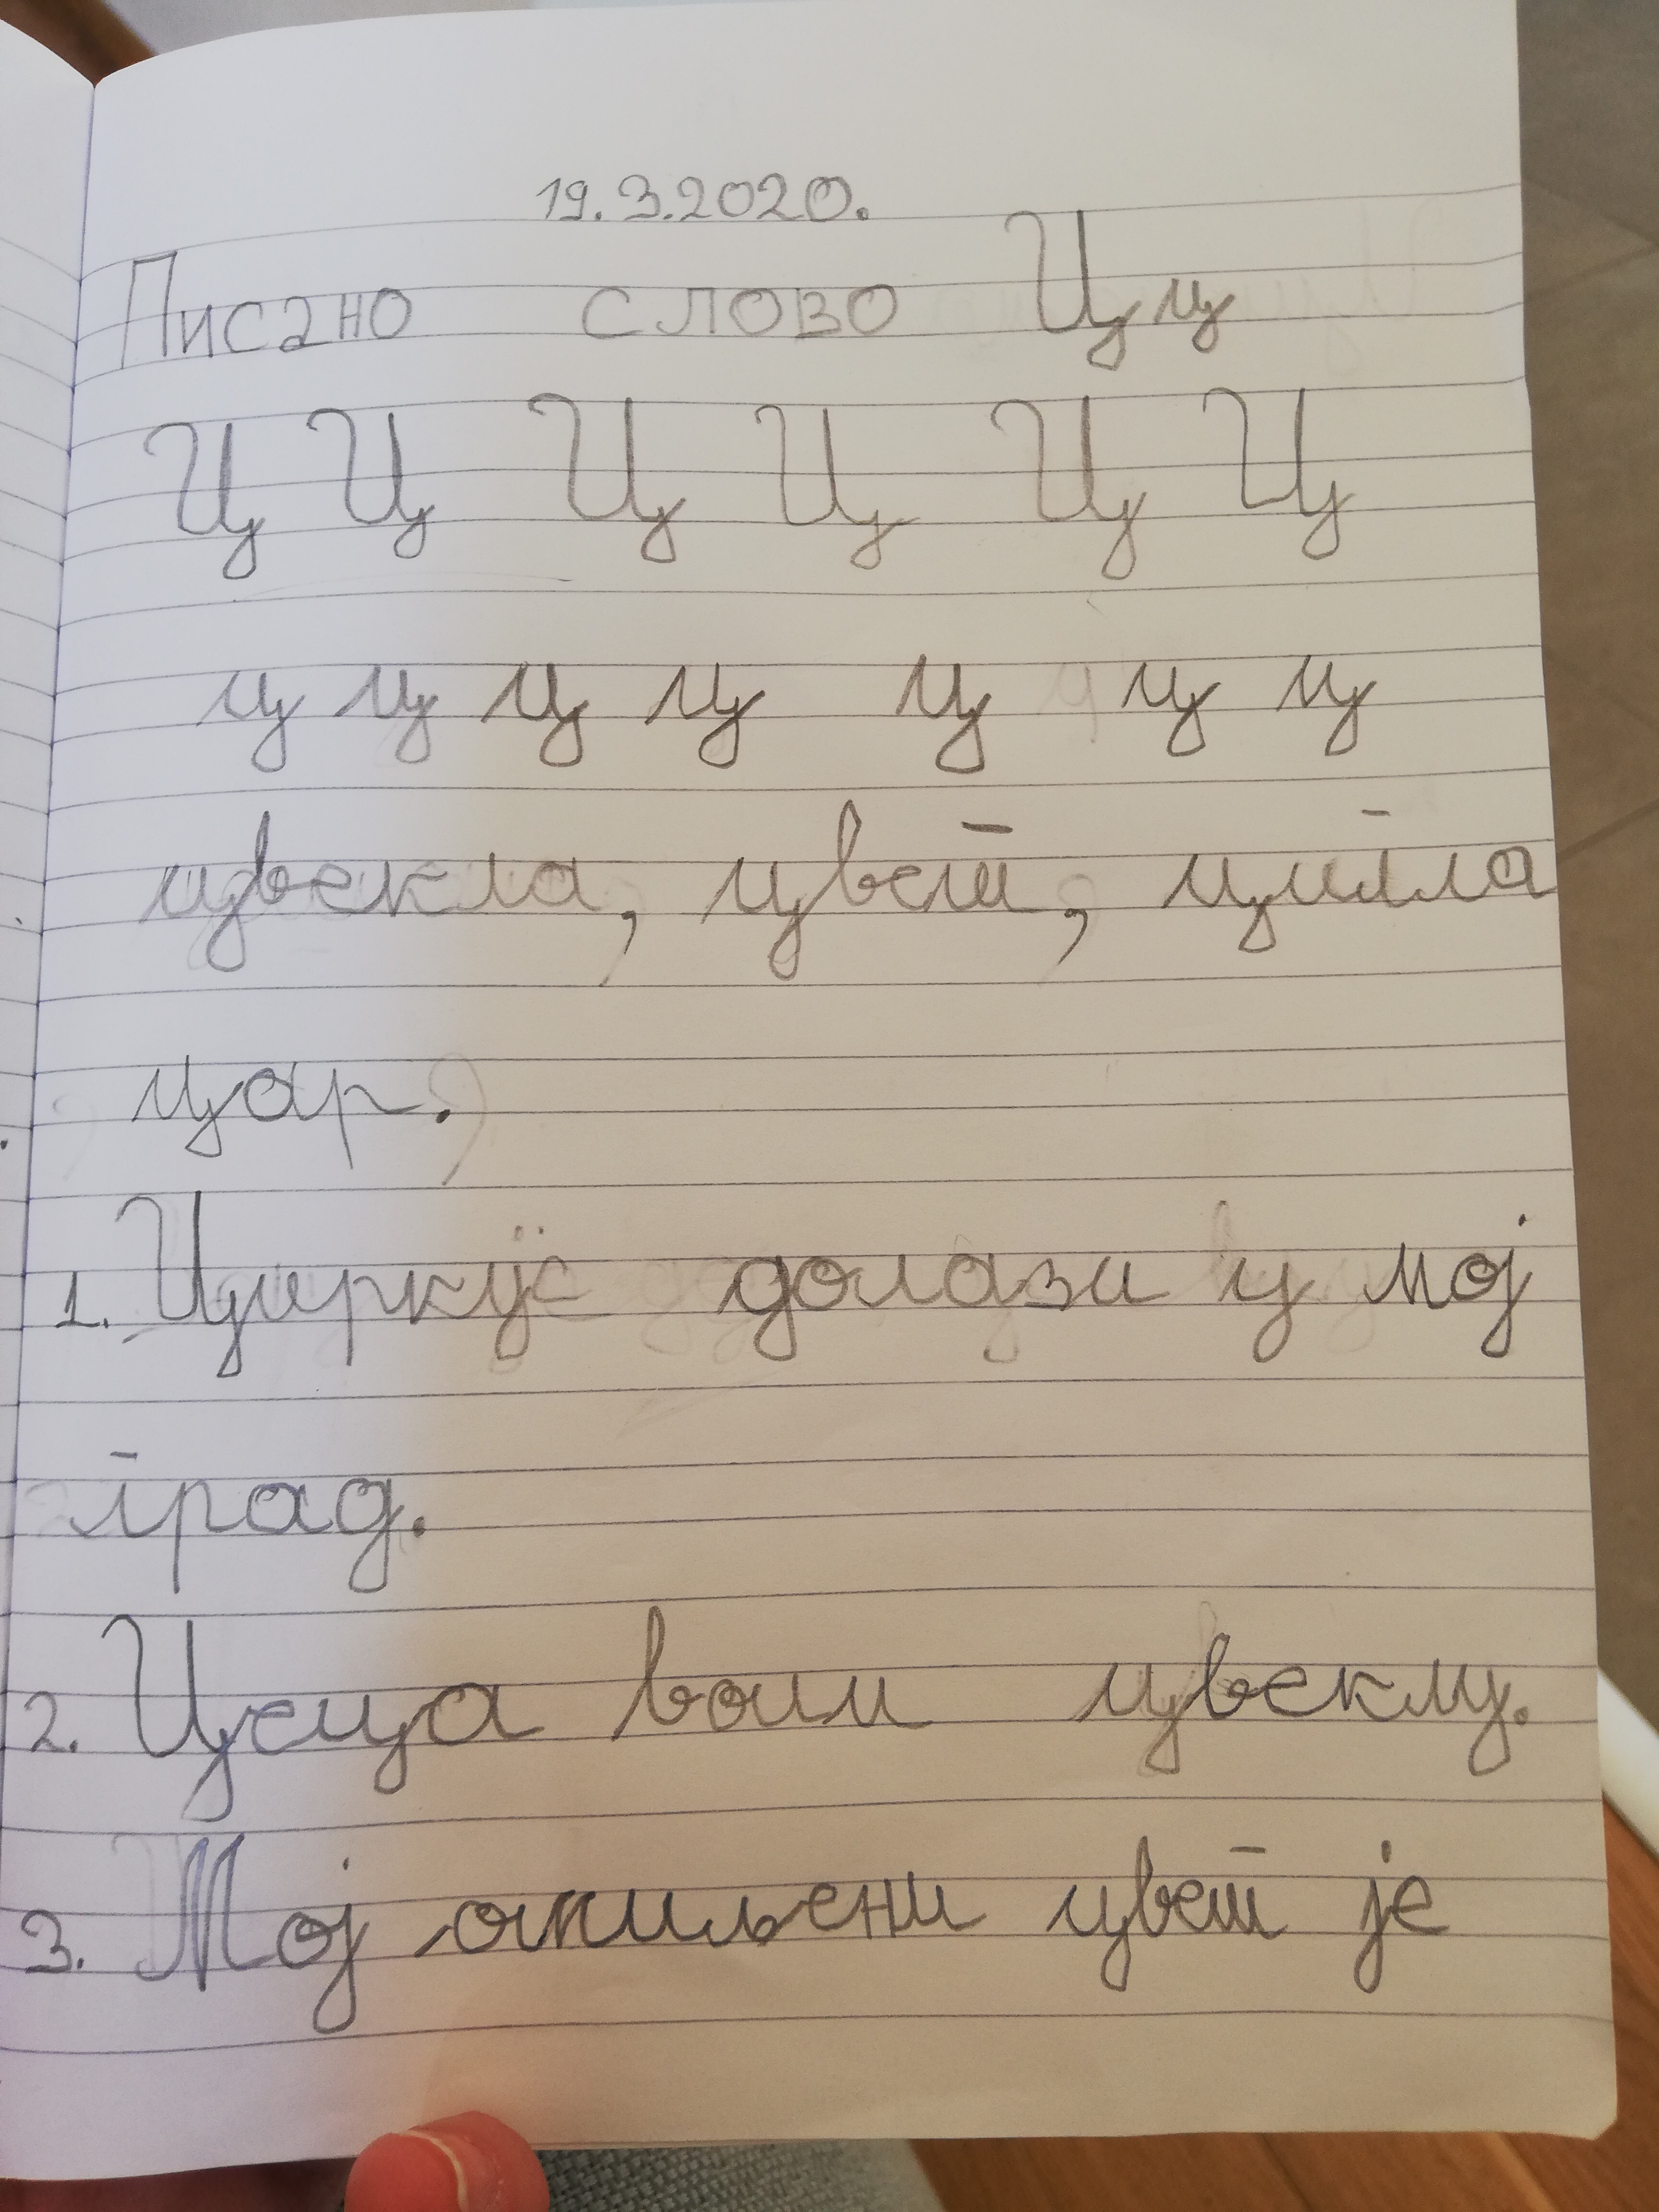 19.3.2020.
Писано слово Ц ц
Ц Ц Ц Ц Ц Ц
ц ц ц ц ц ц ц
цвекла, цвет, цигла
цар.
1. Циркус долази у мој
град.
2. Цеца воли цвеклу.
3. Мој омиљени цвет је